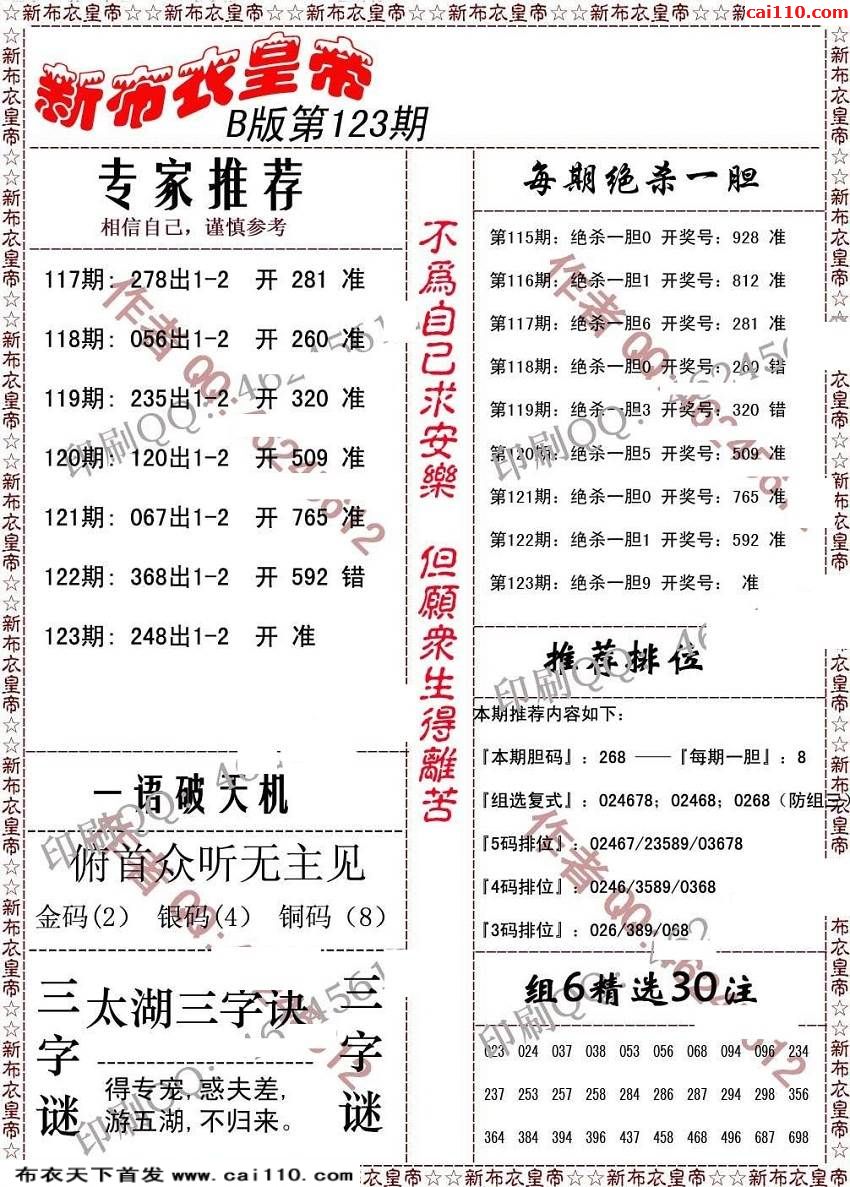 ☆☆新布衣皇帝☆☆新布衣皇帝☆☆新布衣皇帝☆☆新布衣皇帝☆☆新布衣皇帝☆☆新
cai110.com
新布衣皇帝
B版第123期
专家推荐
相信自己，谨慎参考
117期: 278出1-2 开 281 准
118期: 056出1-2 开 260 准
119期: 235出1-2 开 320 准
120期: 120出1-2 开 509 准
121期: 067出1-2 开 765 准
122期: 368出1-2 开 592 错
123期: 248出1-2 开 准
一语破天机
俯首众听无主见
金码(2) 银码(4) 铜码（8）
三字谜
太湖三字诀
得专宠,惑夫差,
游五湖,不归来。
三字谜
不為自己求安樂 但願衆生得離苦
每期绝杀一胆
第115期：绝杀一胆0 开奖号：928 准
第116期：绝杀一胆1 开奖号：812 准
第117期：绝杀一胆6 开奖号：281 准
第118期：绝杀一胆0 开奖号：260 错
第119期：绝杀一胆3 开奖号：320 错
第120期：绝杀一胆5 开奖号：509 准
第121期：绝杀一胆0 开奖号：765 准
第122期：绝杀一胆1 开奖号：592 准
第123期：绝杀一胆9 开奖号： 准
推荐排位
本期推荐内容如下：
『本期胆码』：268 ——『每期一胆』：8
『组选复式』：024678；02468；0268（防组三）
『5码排位』：02467/23589/03678
『4码排位』：0246/3589/0368
『3码排位』：026/389/068
组6精选30注
023 024 037 038 053 056 068 094 096 234
237 253 257 258 284 286 287 294 298 356
364 384 394 396 437 458 468 496 687 698
布衣天下首发 www.cai110.com
衣皇帝☆☆新布衣皇帝☆☆新布衣皇帝☆☆新布衣皇帝☆☆